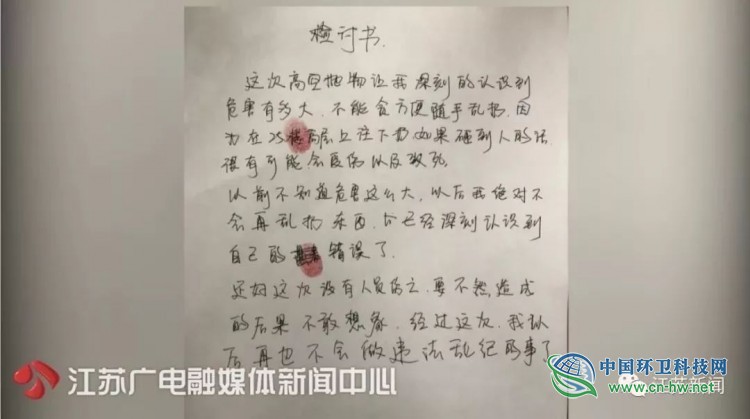 检讨书.
这次高空抛物让我深刻的认识到
危害有多大、不能贪方便随手乱扔、因
为在25楼高层上往下扔如果砸到人的话
很有可能会受伤以及致死。
以前不知道危害这么大、以后我绝对不
会再乱扔东西、已经深刻认识到
自己的错误了.
还好这次没有人员伤亡、要不然,造成
的后果不敢想象. 经过这次、我以
后再也不会做违法乱纪的事了
江苏广电融媒体新闻中心
江苏新闻
中国环卫科技网
www.cn-hw.net